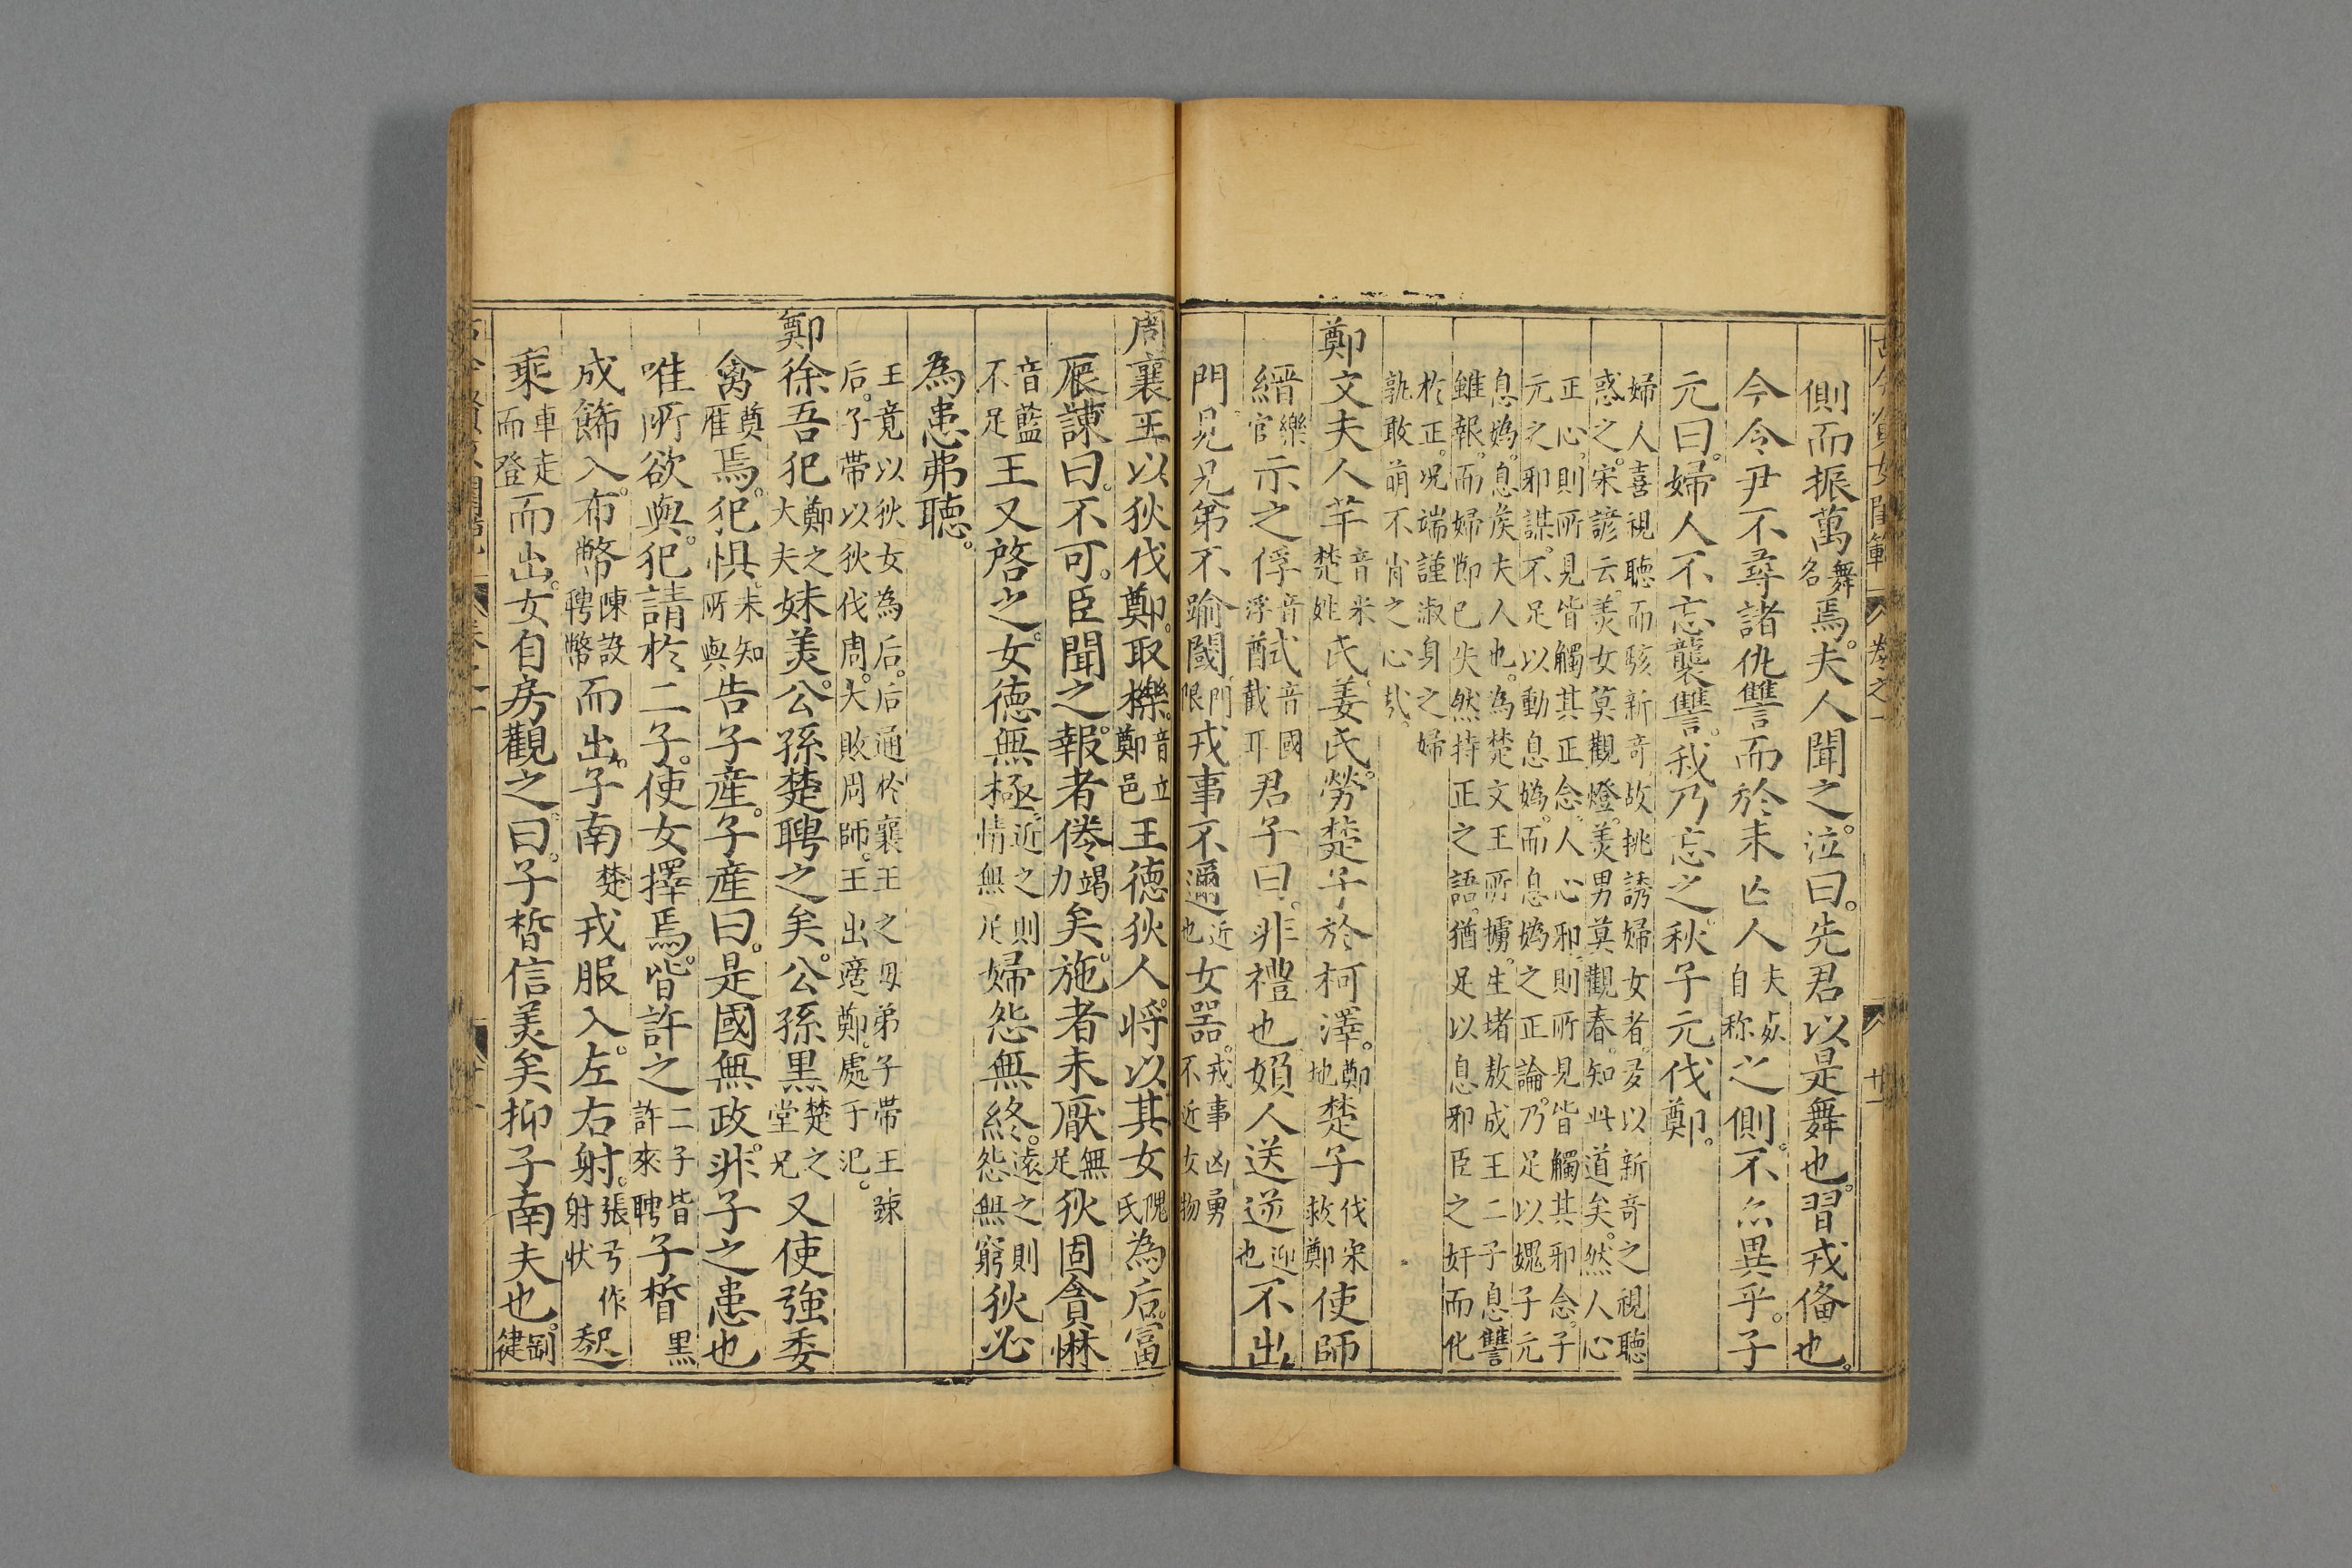 側而振萬舞名焉。夫人聞之。泣曰。先君以是舞也。習戎俻也。
今令尹不尋諸仇讐而於未亡人夫自称之側。不亦異乎。子
元曰。婦人不忘襲讐。我乃忘之。秋子元伐鄭。
婦人喜視聽而駭新奇。故挑誘婦女者。多以新奇之視聽
惑之。宋諺云。美女莫觀燈。美男莫觀春。知此道矣。然人心
正心。則所見皆觸其正念。人心邪。則所見皆觸其邪念。子
元之邪謀。不足以動息媯。而息媯之正論。乃足以媿子元
息媯。息矦夫人也。為楚文王所擄。生堵敖成王二子。息讐
雖報。而婦節已失。然持正之語。猶足以息邪臣之奸而化
於正。况端謹淑身之婦
孰敢萌不肖之心哉。
鄭文夫人芊音米楚姓氏。姜氏。勞楚子於柯澤。鄭地楚子伐宋救鄭使師
縉樂官示之俘音浮馘音國截耳君子曰。非禮也。婦人送逆迎也不出
門。見兄弟不踰閾門限戎事不邇近也女器。戎事凶勇不近女物
周襄王以狄伐鄭。取櫟。音立鄭邑王德狄人。將以其女隗氏為后。富
辰諫曰。不可。臣聞之。報者倦竭力矣。施者未厭無足狄固貪惏
音藍不足王又啓之。女德無極。近之則情無足婦怨無終。遠之則怨無窮狄必
為患弗聽。
王竟以狄女為后。后通於襄王之母弟子帶王疎
后。子帶以狄伐周。大敗周師。王出適鄭。處于氾。
鄭徐吾犯鄭之大夫妹美。公孫楚聘之矣。公孫黑楚之堂兄又使強委
禽奠雁焉。犯懼。未知所與告子産。子産曰。是國無政。非子之患也
唯所欲與。犯請於二子。使女擇焉。皆許之二子皆許來聘子晳黑
成餙入。布幣陳設聘幣而出。子南楚戎服入。左右射。張弓作射狀超
乘車走而登而出。女自房觀之。曰。子晳信美矣抑子南夫也。剛健